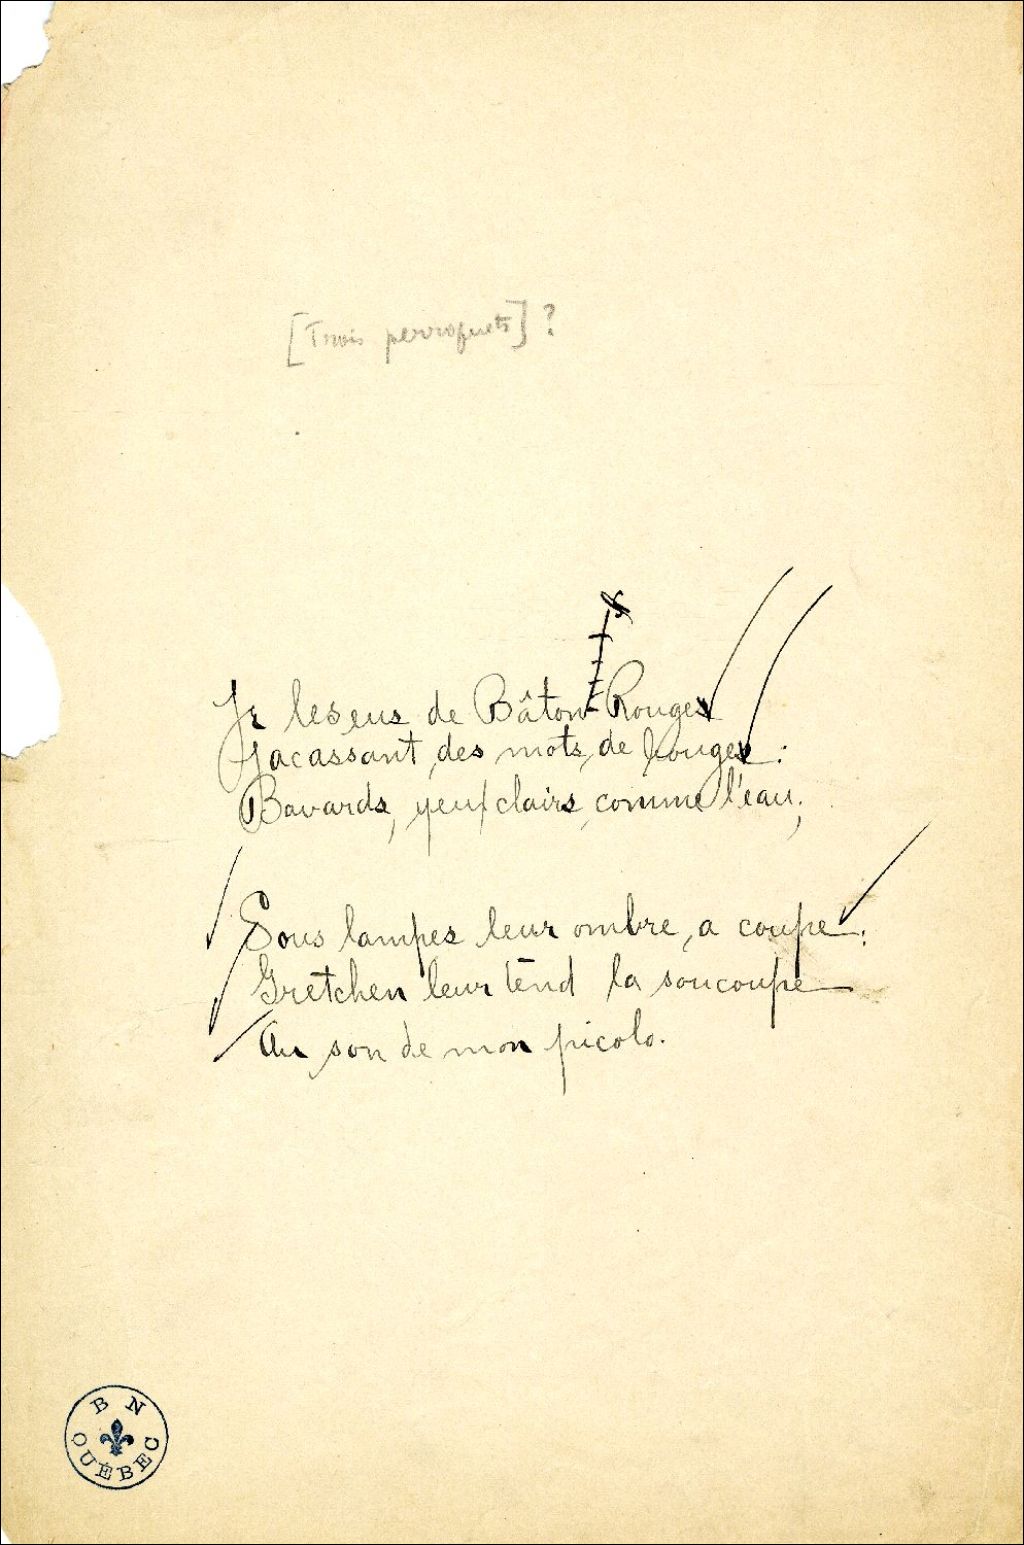 [Trois perroquets] ?
Je les eus de Bâton Rouge
Jacassant des mots de bouge :
Bavards, yeux clairs comme l'eau;
Sous lampes leur ombre, a coupe :
Gretchen leur tend la soucoupe
Au son de mon picolo.
B N
QUÉBEC